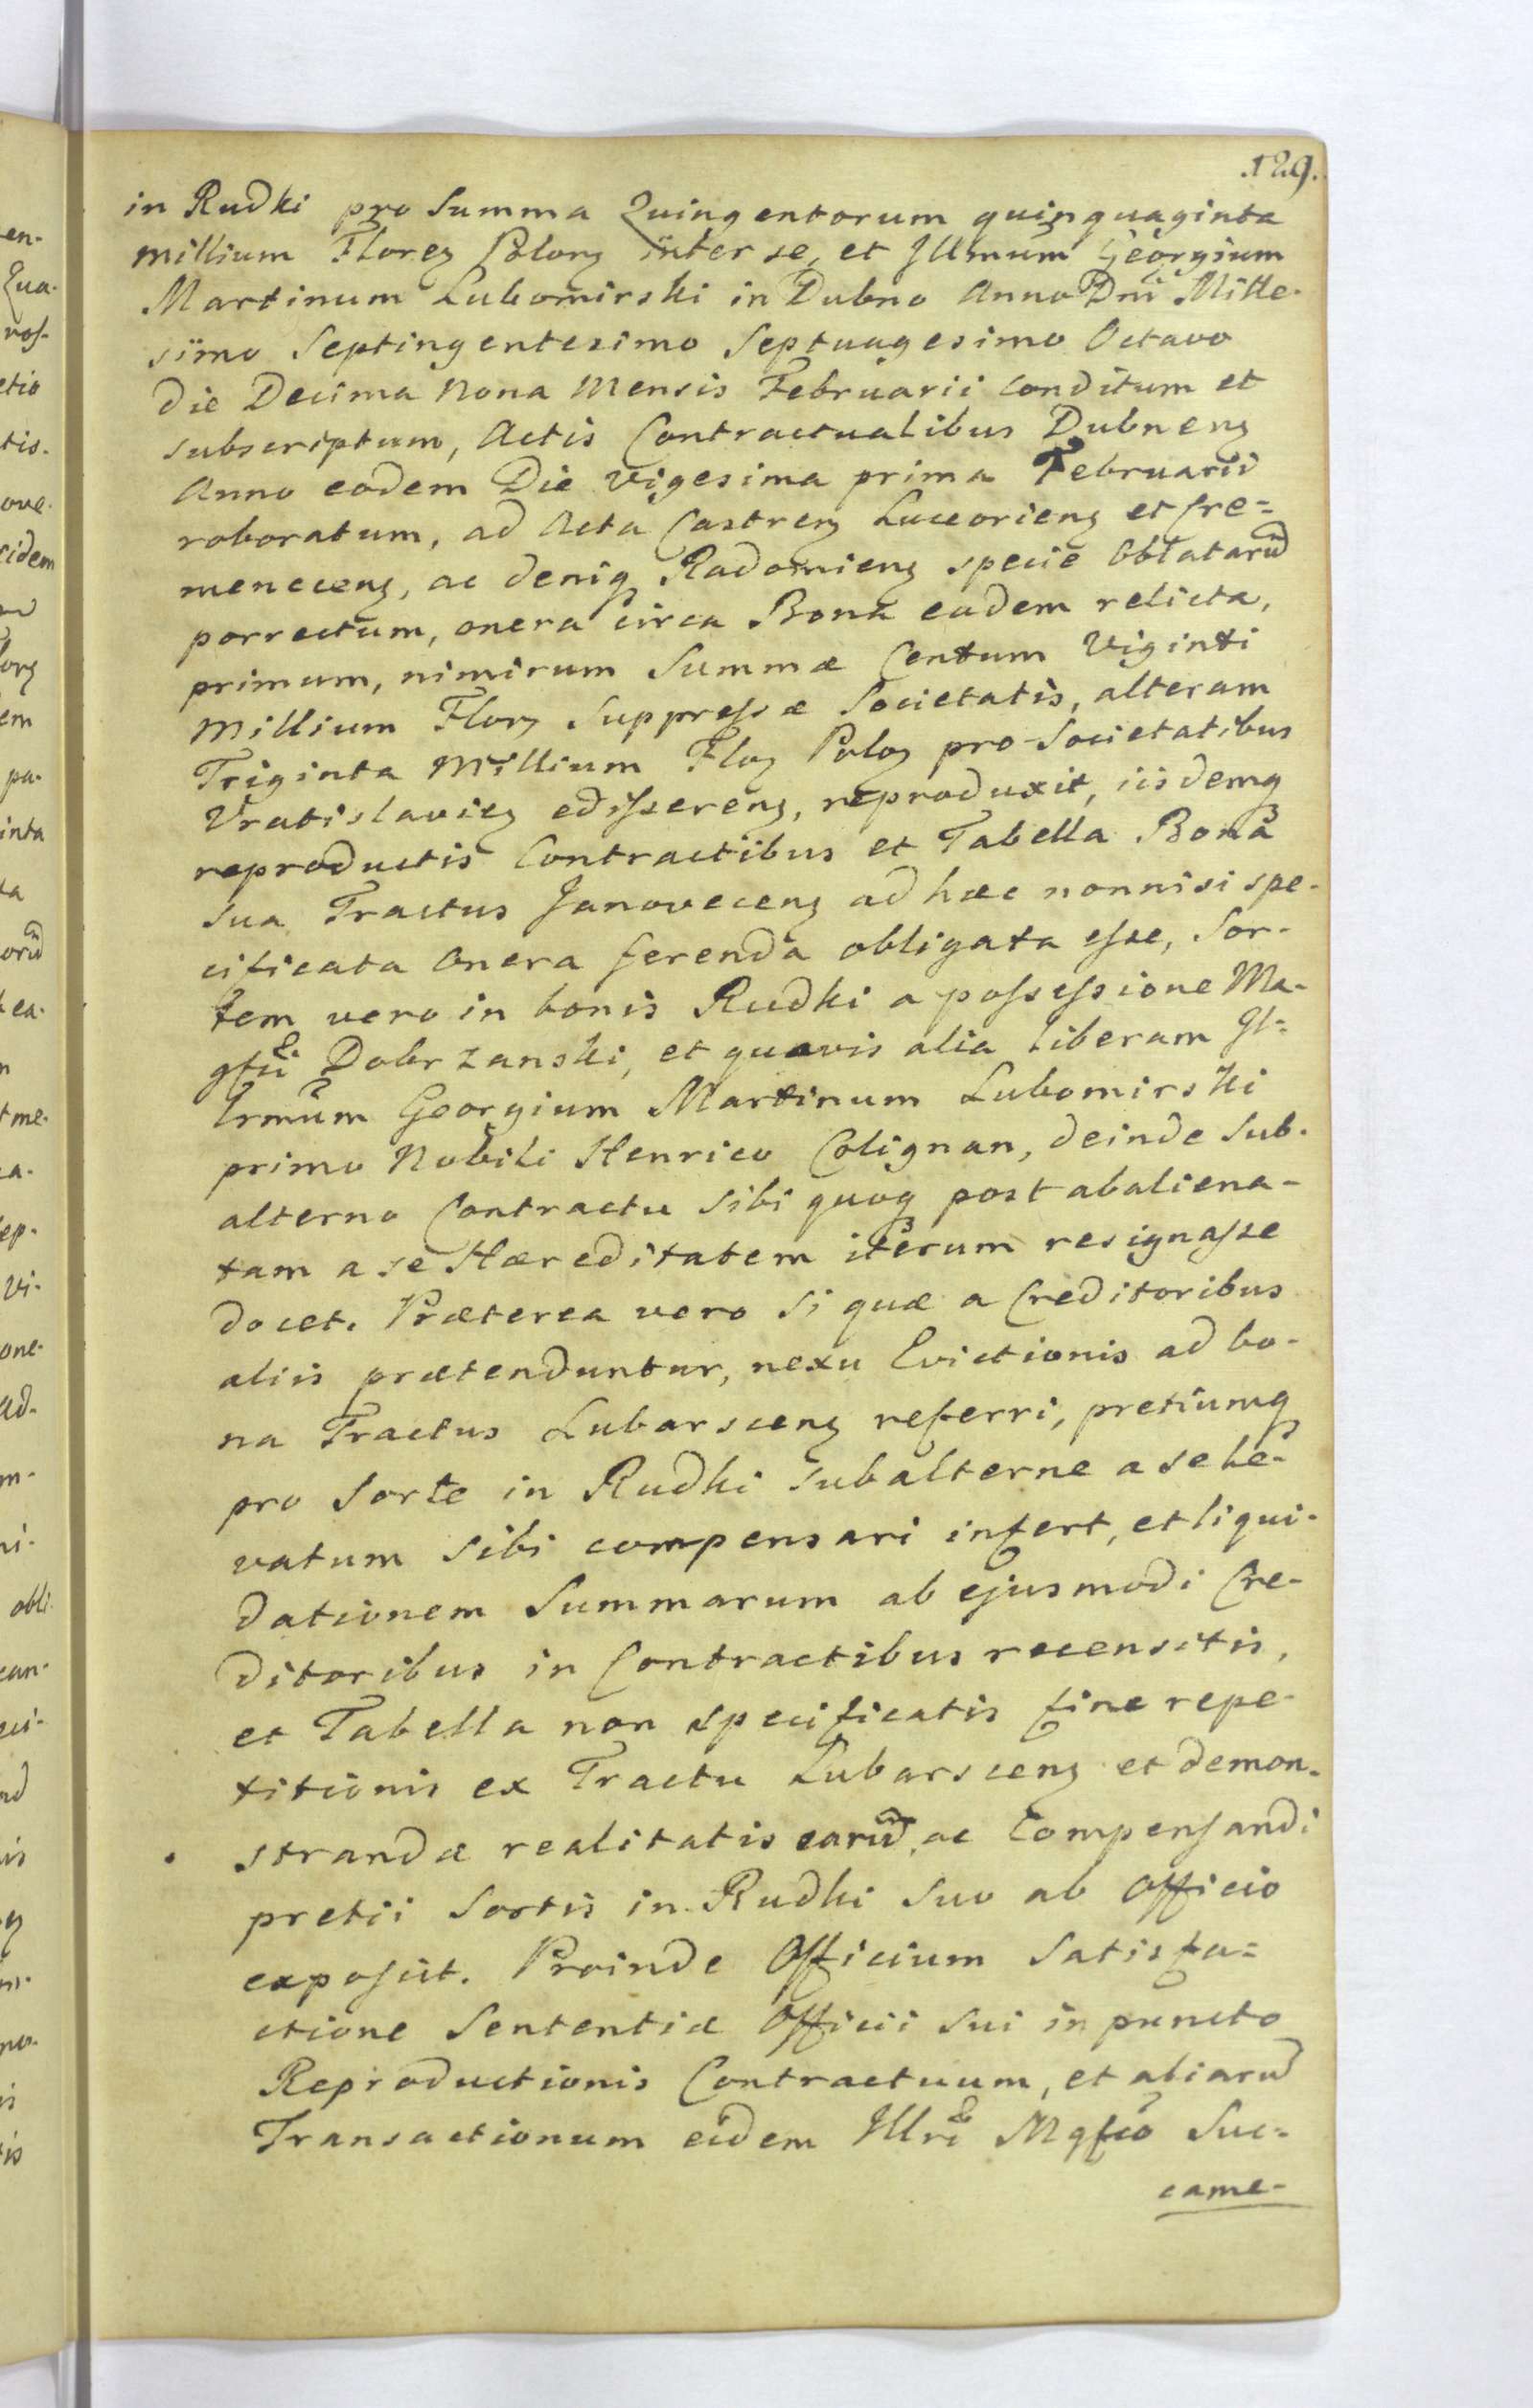 129.
in Rudki pro Summa Quingentorum quinquaginta
millium Floreꝫ Polonꝫ inter se, et Illmum Georgium
Martinum Lubomirski in Dubno Anno Dni Mille-
simo Septingentesimo Septuagesimo Octavo
die Decima Nona Mensis Februarii conditum et
subscriptum, Actis Contractualibus Dubnenꝫ
Anno eodem Die vigesima prima Februarii
roboratum, ad Acta Castrenꝫ Luceorienꝫ et Cre=
menecenꝫ, ac deniqꝫ Radomienꝫ specie oblatarũ
porrectum, onera circa Bona eadem relicta,
primum, nimirum Summæ Centum Viginti
Millium Florꝫ Suppressæ Societatis, alteram
Triginta Millium Floꝫ Poloꝫ pro Societatibus
Vratislavieꝫ edisserenꝫ, reproduxit, iisdemqꝫ
reproductis Contractibus et Tabella Bona
sua Tractus Janovecenꝫ ad hæc nonnisi spe-
cificata Onera ferenda obligata esse, Sor-
tem vero in bonis Rudki a possessione Ma-
gfci Dobrzanski, et quavis alia liberam Il-
lrmũm Georgium Martinum Lubomirski
primo Nobili Henrico Colignan, deinde Sub-
alterno Contractu sibi quoqꝫ post abaliena-
tam a se Hæreditatem iterum resignasse
docet. Præterea vero si quæ a Creditoribus
aliis prætenduntur, nexu Evictionis ad bo-
na Tractus Lubarscenꝫ referri, pretiumqꝫ
pro Sorte in Rudki subalterne a se le-
vatum sibi compensari infert, et liqui-
dationem Summarum ab ejusmodi Cre-
ditoribus in Contractibus recensitis,
et Tabella non specificatis fine repe-
titionis ex Tractu Lubarscenꝫ et demon-
strandæ realitatis earũ, ac Compensandi
pretii Sortis in Rudki suo ab Officio
exposcit. Proinde Officium Satisfa=
ctione Sententiæ Officii sui in puncto
Reproductionis Contractuum, et aliarũ
Transactionum eidem Illri Mgfco Suc=
came-
en-
Qua-
etio
tis.
ove-
idem
em
pa-
inta
ea-
me-
Vi-
one-
obli-